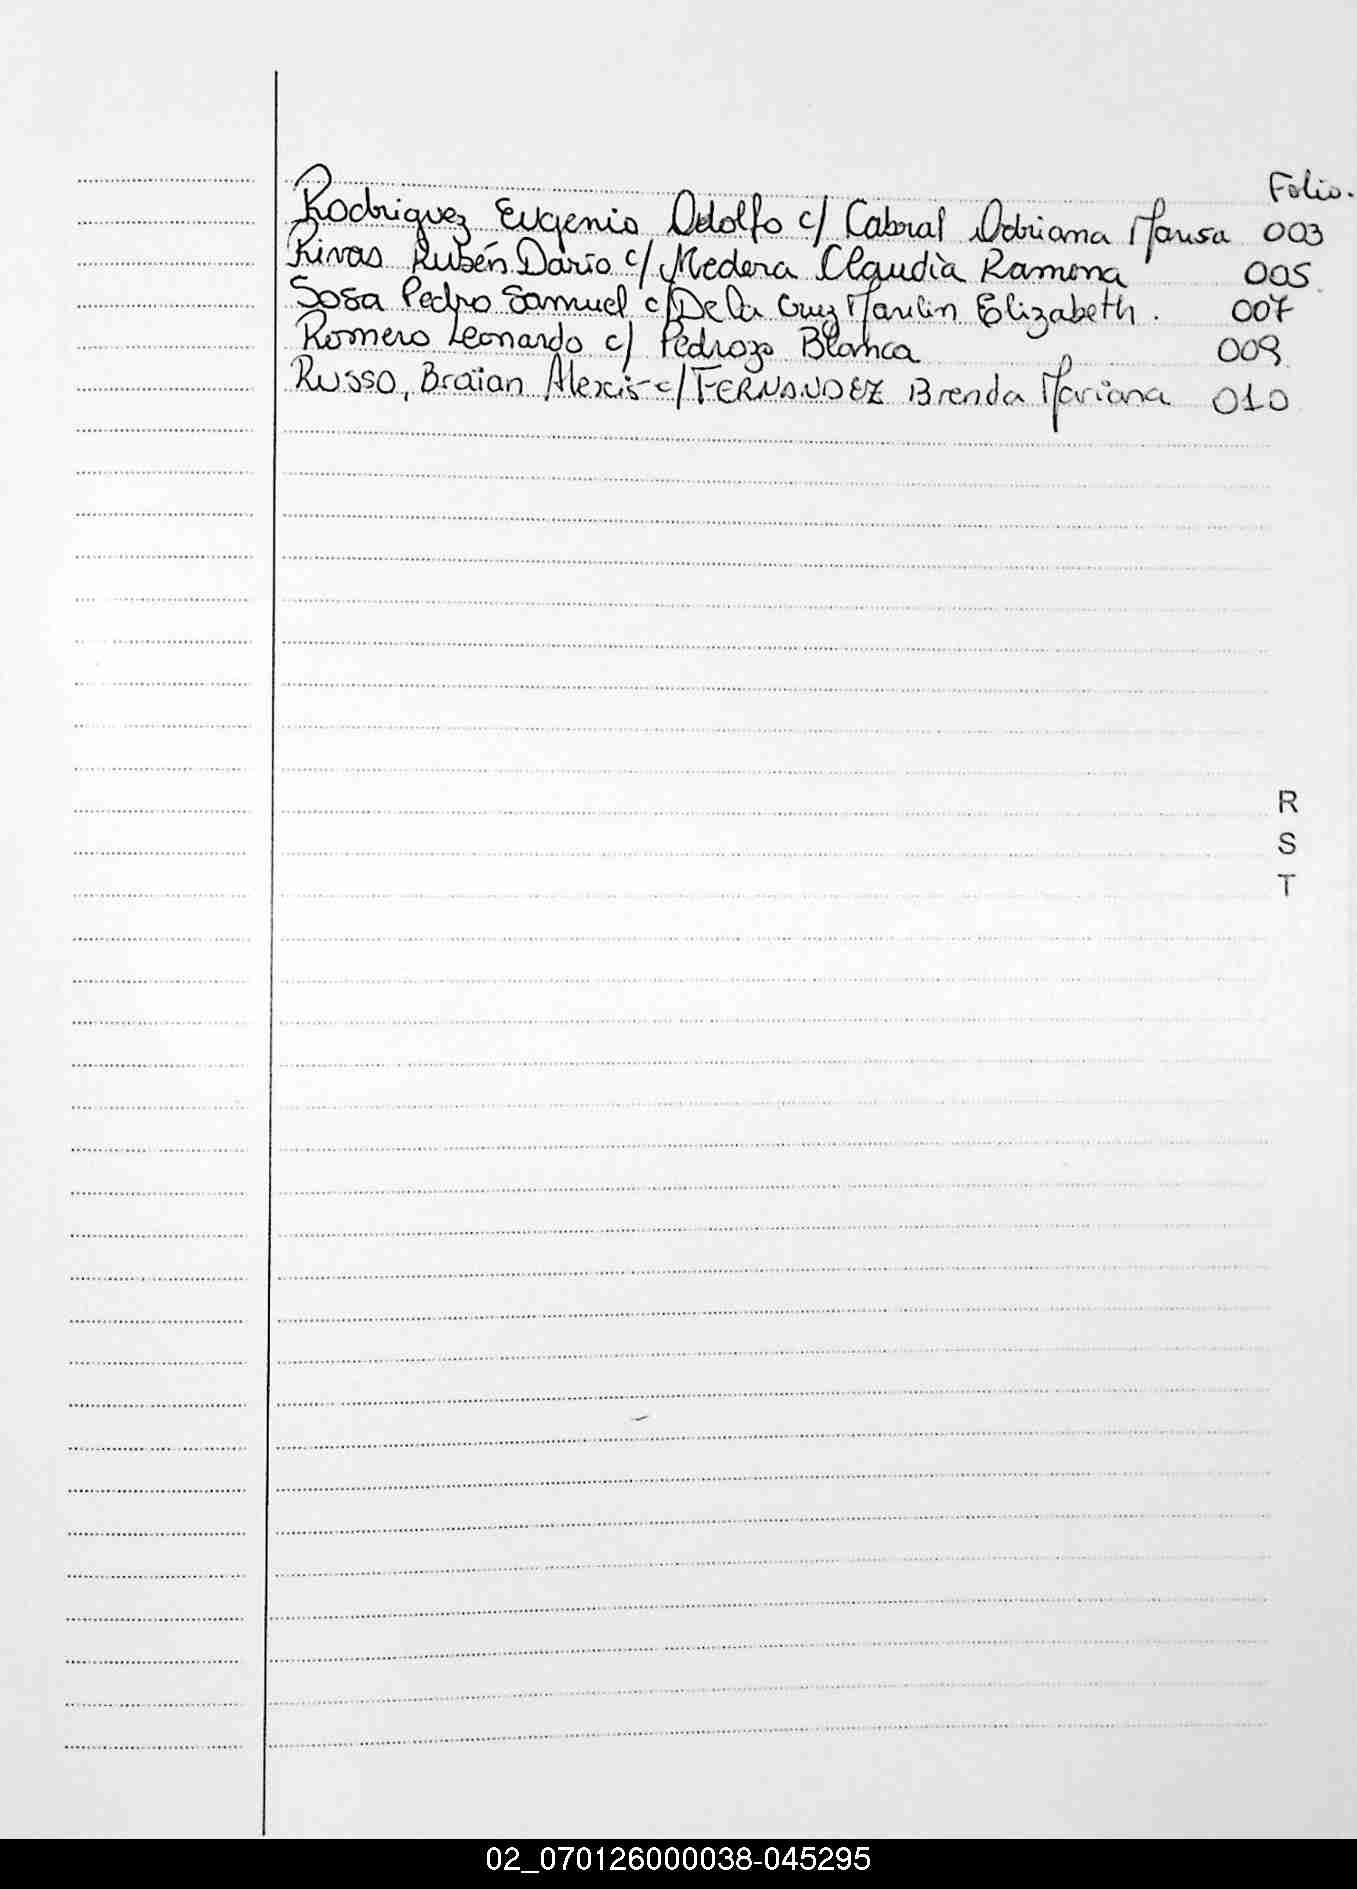 Folio.
Rodriguez Eugenio Adolfo c/ Cabral Adriana Marisa 003
Rivas Rubén Dario c/ Medera Claudia Ramona 005
Sosa Pedro Samuel c/ De la Cruz Marilin Elizabeth. 007
Romero Leonardo c/ Pedrozo Blanca 009
Russo, Braian Alexis c/ FERNANDEZ Brenda Mariana 010
R
S
T
02_070126000038-045295